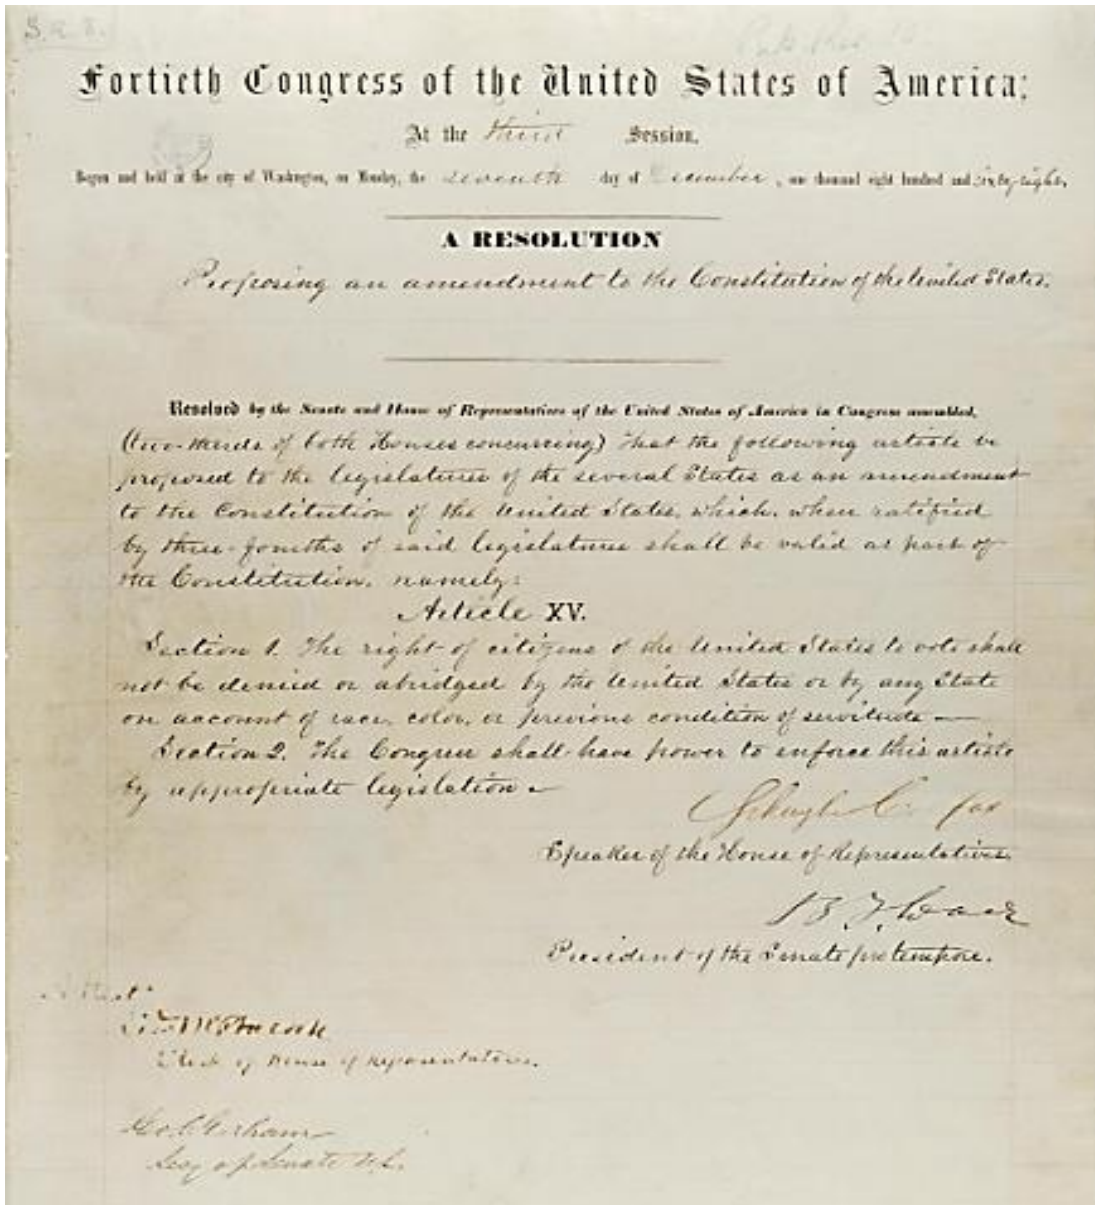 S.R.8.
Fortieth Congress of the United States of America;
At the third Session,
Begun and held at the city of Washington, on Monday, the seventh day of December, one thousand eight hundred and sixty-eight.
A RESOLUTION
Proposing an amendment to the Constitution of the United States.
Resolved by the Senate and House of Representatives of the United States of America in Congress assembled,
(two-thirds of both Houses concurring) That the following article be
proposed to the legislatures of the several States as an amendment
to the Constitution of the United States, which, when ratified
by three-fourths of said legislatures shall be valid as part of
the Constitution, namely:
Article XV.
Section 1. The right of citizens of the United States to vote shall
not be denied or abridged by the United States or by any State
on account of race, color, or previous condition of servitude —
Section 2. The Congress shall have power to enforce this article
by appropriate legislation —
Schuyler Colfax
Speaker of the House of Representatives.
B. F. Wade
President of the Senate pro tempore.
Attest:
McPherson
Clerk of House of Representatives.
Geo. C. Gorham
Secy of Senate U.S.